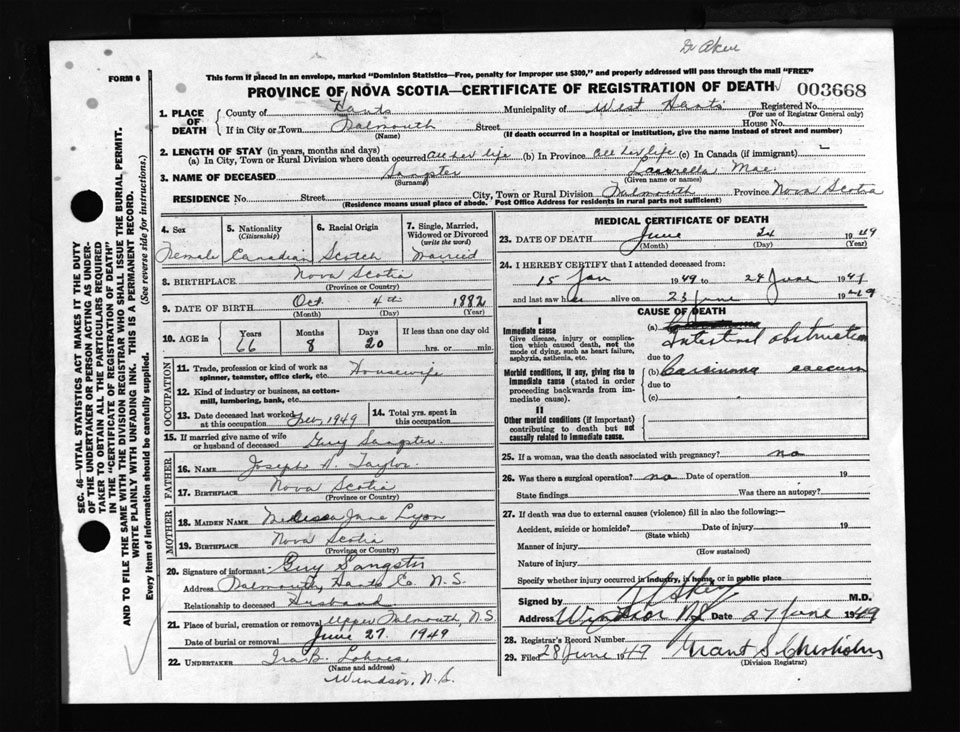 Dr Aker
FORM 6
This form if placed in an envelope, marked "Dominion Statistics—Free, penalty for improper use $300," and properly addressed will pass through the mail "FREE"
PROVINCE OF NOVA SCOTIA—CERTIFICATE OF REGISTRATION OF DEATH 003668
1. PLACE OF DEATH County of Hants Municipality of West Hants Registered No.
(For use of Registrar General only)
If in City or Town Falmouth Street House No.
(Name) (If death occurred in a hospital or institution, give the name instead of street and number)
2. LENGTH OF STAY (in years, months and days)
(a) In City, Town or Rural Division where death occurred All her life (b) In Province All her life (c) In Canada (if immigrant) —
3. NAME OF DECEASED Sangster Mae
(Surname) (Given name or names)
RESIDENCE No. Street City, Town or Rural Division Falmouth Province Nova Scotia
(Residence means usual place of abode. Post Office Address for residents in rural parts not sufficient)
4. Sex Female
5. Nationality (Citizenship) Canadian
6. Racial Origin Scotch
7. Single, Married, Widowed or Divorced (write the word) Married
8. BIRTHPLACE Nova Scotia
(Province or Country)
9. DATE OF BIRTH Oct. 4th 1882
(Month) (Day) (Year)
10. AGE in Years 66 Months 8 Days 20 If less than one day old
hrs. or min.
OCCUPATION
11. Trade, profession or kind of work as spinner, teamster, office clerk, etc. Housewife
12. Kind of industry or business, as cotton-mill, lumbering, bank, etc.
13. Date deceased last worked at this occupation 1949 14. Total yrs. spent in this occupation
15. If married give name of wife or husband of deceased Guy Sangster
FATHER
16. NAME Joseph A. Taylor
17. BIRTHPLACE Nova Scotia
(Province or Country)
MOTHER
18. MAIDEN NAME Jane Lyon
19. BIRTHPLACE Nova Scotia
(Province or Country)
20. Signature of informant Guy Sangster
Address Falmouth, Hants Co. N.S.
Relationship to deceased Husband
21. Place of burial, cremation or removal Upper Falmouth, N.S.
Date of burial or removal June 27. 1949
22. UNDERTAKER Ira B. Lohnes
(Name and address)
Windsor, N.S.
MEDICAL CERTIFICATE OF DEATH
23. DATE OF DEATH June 24 1949
(Month) (Day) (Year)
24. I HEREBY CERTIFY that I attended deceased from:
15 Jan 1949 to 24 June 1949
and last saw her alive on 23 June 1949
CAUSE OF DEATH
I
Immediate cause
Give disease, injury or complication which caused death, not the mode of dying, such as heart failure, asphyxia, asthenia, etc.
(a) Intestinal obstruction
due to
Morbid conditions, if any, giving rise to immediate cause (stated in order proceeding backwards from immediate cause).
(b) Carcinoma caecum
due to
(c)
II
Other morbid conditions (if important) contributing to death but not causally related to immediate cause.
25. If a woman, was the death associated with pregnancy? no
26. Was there a surgical operation? no Date of operation 19
State findings Was there an autopsy?
27. If death was due to external causes (violence) fill in also the following:—
Accident, suicide or homicide? Date of injury 19
(State which)
Manner of injury
(How sustained)
Nature of injury
Specify whether injury occurred in industry, in home, or in public place
Signed by M.D.
Address Windsor NS Date 27 June 1949
28. Registrar's Record Number
29. Filed 28 June 1949 Grant S. Chisholm
(Division Registrar)
SEC. 46—VITAL STATISTICS ACT MAKES IT THE DUTY
OF THE UNDERTAKER OR PERSON ACTING AS UNDER-
TAKER TO OBTAIN ALL THE PARTICULARS REQUIRED
IN THE "CERTIFICATE OF REGISTRATION OF DEATH"
AND TO FILE THE SAME WITH THE DIVISION REGISTRAR WHO SHALL ISSUE THE BURIAL PERMIT.
WRITE PLAINLY WITH UNFADING INK. THIS IS A PERMANENT RECORD.
Every item of information should be carefully supplied. (See reverse side for instructions.)